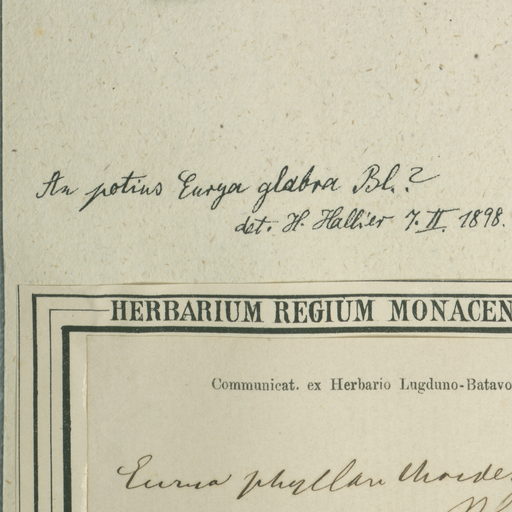 An potius Eurya glabra Bl.?
det. H. Hallier 7. II. 1898.
HERBARIUM REGIUM MONACEN
Communicat. ex Herbario Lugduno-Batavo
Eurya phyllanthoides
Bl